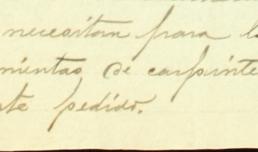 necesitan para l
mientas de carpinte
te pedido.